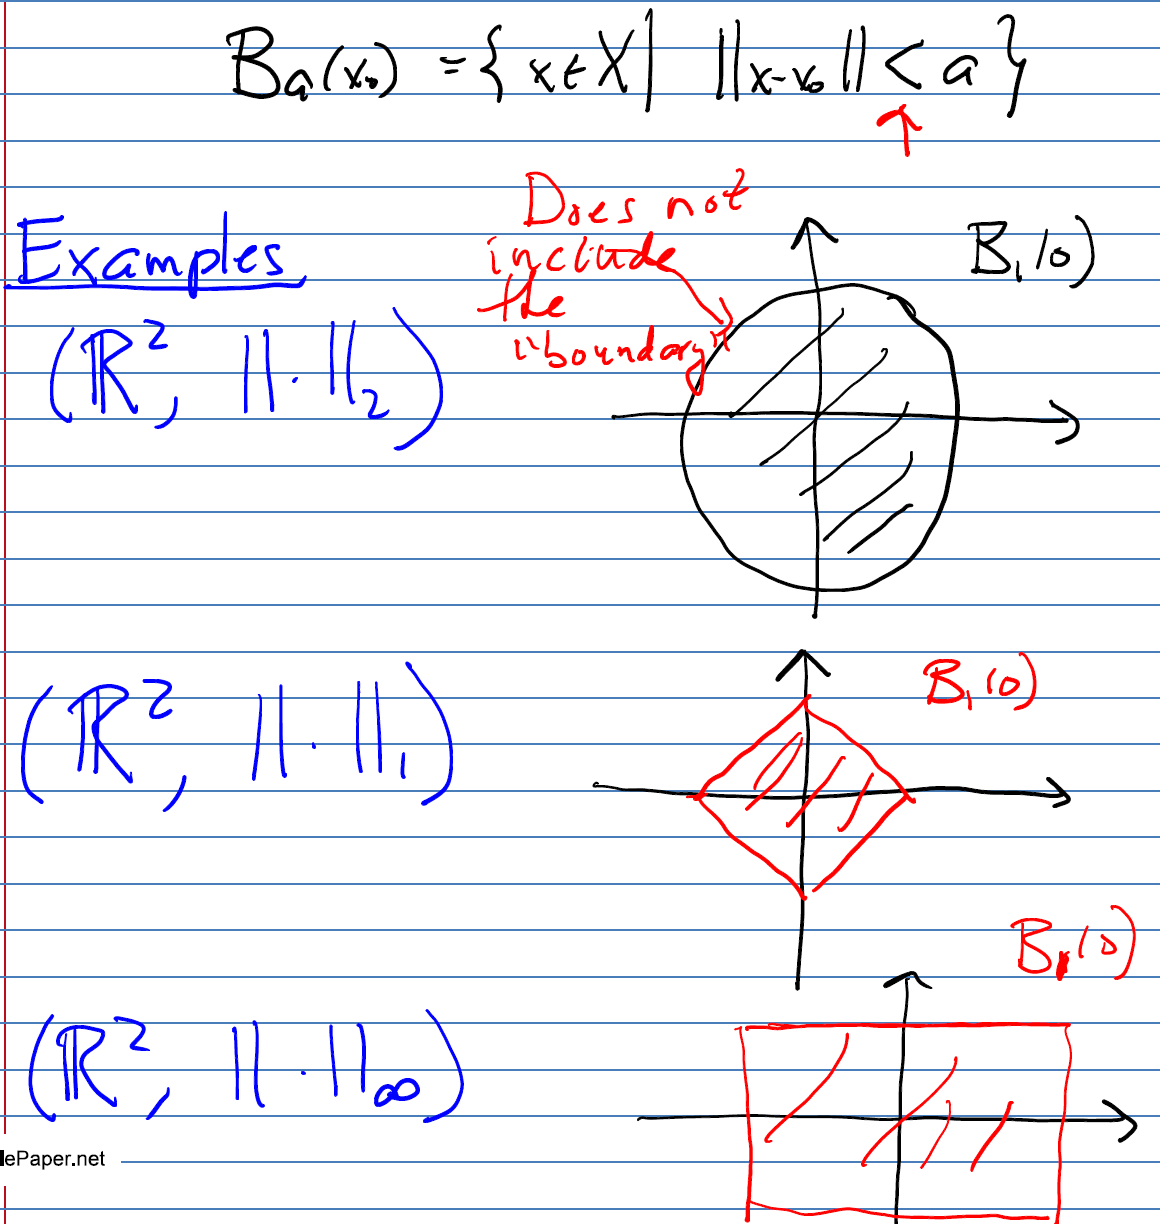 Bₐ(x₀) = { x ∈ X | ||x-x₀|| < a }
Does not
include
the
"boundary"
Examples
B₁(0)
(ℝ², ||·||₂)
(ℝ², ||·||₁)
B₁(0)
B₁(0)
(ℝ², ||·||∞)
lePaper.net